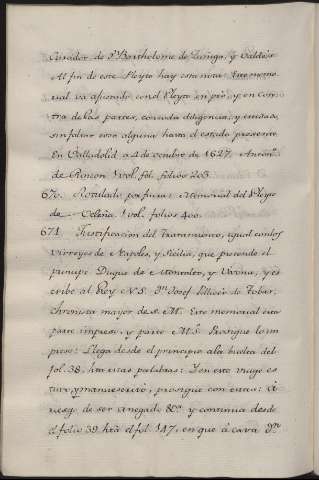 Curador de Dn Bartholome de Zuniga, y Valdés
Al fin de este Pleyto hay esta nota: Este memo
rial va ajustado con el Pleyto en pro, y en con
tra de las partes, con toda diligencia, y cuidado,
sin faltar cosa alguna hasta el estado presente
En Valladolid a 4 de 1627. Anton.
de Rincon 1 vol. fol. folios 203.
670. Rotulado por fuera: Memorial del Pleyto
de 1 vol. folios 400.
671. Justificacion del Tratamiento, igual con los
Virreyes de Napoles, y Sicilia, que pretende el
principe Duque de Montealto, y Vivona, y es
cribe al Rey N. S. Dn Josef Pellicer de Tobar.
Chronista mayor de S. M. Este memorial esta
parte impreso, y parte M. S. Prosigue lo im
preso: Llega desde el principio a la buelta del
fol. 38. hta estas palabras: I en este muy es
 y prosigue con estas: á
riesgo de ser anegad. &ca. y continua desde
el folio 39 hta el fol. 147, en que acava Dn